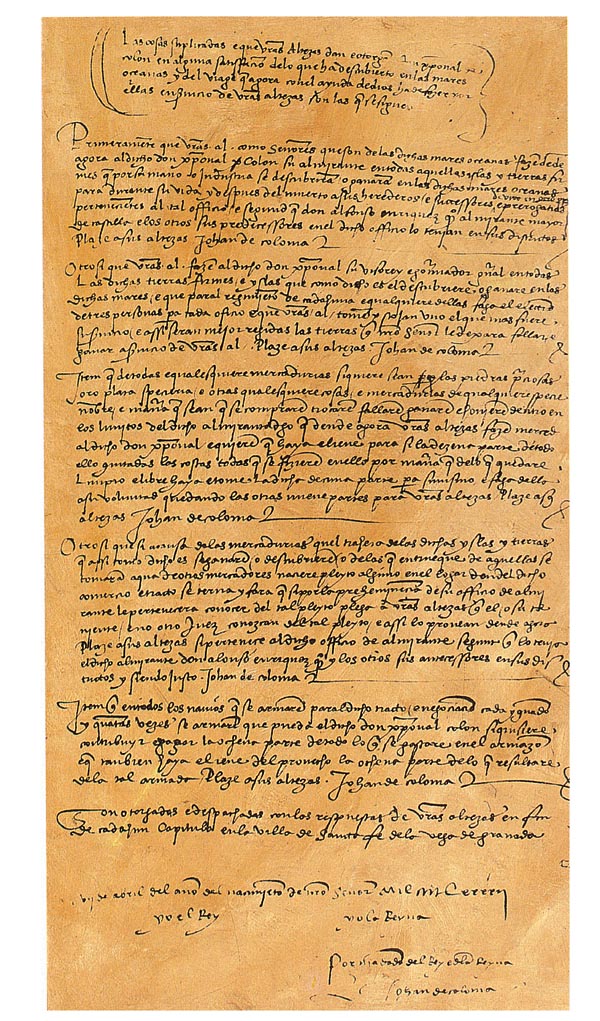 Las cosas suplicadas e que vras Altezas dan e otorgan a don xpoval
colon en alguna satisfacion de lo que ha descubierto en las mares
oceanas y del viage que agora con el ayuda de dios ha de fazer por
ellas en seruicio de vras altezas son las que se siguen
Primeramente que vras al. como Senores que son de las dichas mares oceanas fazen dende
agora al dicho don xpoval Colon su almirante en todas aquellas islas y tierras fir
mes que por su mano o industria se descubriran o ganaran en las dichas mares oceanas
para durante su vida y despues del muerto a sus herederos e successores
pertenescientes al tal officio e segund que don alfonso enriquez almirante mayor
de castilla e los otros sus predecessores en el dicho officio lo tenian en sus districtos
Plaze a sus altezas Johan de coloma
Otrosi que vras al. fazen al dicho don xpoval su visorey e gouernador general en todas
las dichas tierras firmes e yslas que como dicho es el descubriere o ganare en las
dichas mares, e que para el regimiento de cada huna e qualquiere dellas faga el eleccion
de tres personas pa cada oficio e que vras al. tomen y scojan uno el que mas fuere
su seruicio, e assi seran mejor regidas las tierras que nro Senor le dexara fallar e
ganar a seruicio de vras al. Plaze a sus altezas Johan de coloma
Item que de todas e qualesquiere mercadurias siquiere sean perlas piedras preciosas
oro plata specieria e otras qualesquiere cosas, e mercadurias de qualquiere specie
nombre, e manera que sean que se compraren trocaren fallaren ganaren e houieren dentro en
los limites del dicho almirantadgo que dende agora vras altezas fazen merced
al dicho don xpoval e quieren que haya e lieue para si la dezena parte de todo
ello quitadas las costas todas que se fizieren en ello por manera que de lo que quedare
limpio e libre haya e tome la dicha decima parte pa si mismo e faga della
a su voluntad quedando las otras nueve partes para vras altezas Plaze a sus
altezas Johan de coloma
Otrosi que si a causa de las mercadurias quel trahera de las dichas yslas y tierras
que assi como dicho es se ganaren o descubrieren o de las que en trueque de aquellas se
tomaran aqua de otros mercadores naciere pleyto alguno en el logar don del dicho
comercio e tracto se terna y fara que si por la preheminencia de su officio de almi
rante le pertenecera conocer del tal pleyto plega a vras altezas que el o su te
niente, e no otro Juez conozcan del tal pleyto, e assi lo prouean dende agora
Plaze a sus altezas si pertenece al dicho officio de almirante segunt que lo tenia
el dicho almirante don alonso enriquez y los otros sus antecessores en sus dis
trictos y siendo Justo Johan de coloma
Item que en todos los nauios que se armaren para el dicho tracto, e negociacion cada y quando
y quantas vezes se armaren que pueda el dicho don xpoval colon si quisiere
contribuyr e pagar la ochena parte de todo lo que se gastare en el armazon
e que tambien haya e lieue del prouecho la ochena parte de lo que resultare
de la tal armada Plaze a sus altezas. Johan de coloma
Son otorgados e despachados con las respuestas de vras altezas en fin
de cada hun Capitulo en la villa de Sancta fe de la vega de granada
de abril del año del nacimiento de nro Senor Mil
yo el Rey yo la Reyna
Por mandado del Rey e dela Reyna
Johan de coloma